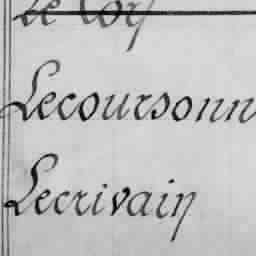 Le Cor
Lecoursonn
Lecrivain